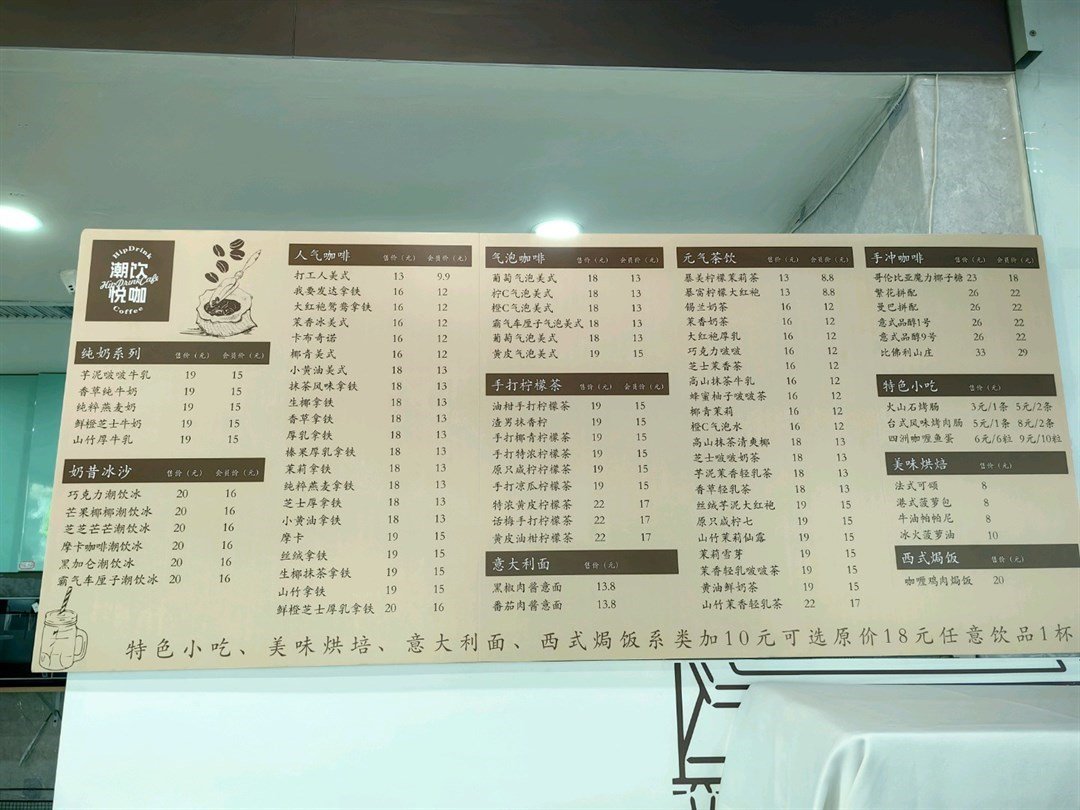 HipDrink
潮饮
HipDrinkCafe
悦咖
Coffee
纯奶系列 售价（元） 会员价（元）
芋泥啵啵牛乳 19 15
香草纯牛奶 19 15
纯粹燕麦奶 19 15
鲜橙芝士牛奶 19 15
山竹厚牛乳 19 15
奶昔冰沙 售价（元） 会员价（元）
巧克力潮饮冰 20 16
芒果椰椰潮饮冰 20 16
芝芝芒芒潮饮冰 20 16
摩卡咖啡潮饮冰 20 16
黑加仑潮饮冰 20 16
霸气车厘子潮饮冰 20 16
人气咖啡 售价（元） 会员价（元）
打工人美式 13 9.9
我要发达拿铁 16 12
大红袍鸳鸯拿铁 16 12
茉香冰美式 16 12
卡布奇诺 16 12
椰青美式 16 12
小黄油美式 18 13
抹茶风味拿铁 18 13
生椰拿铁 18 13
香草拿铁 18 13
厚乳拿铁 18 13
榛果厚乳拿铁 18 13
茉莉拿铁 18 13
纯粹燕麦拿铁 18 13
芝士厚拿铁 18 13
小黄油拿铁 18 13
摩卡 19 15
丝绒拿铁 19 15
生椰抹茶拿铁 19 15
山竹拿铁 19 15
鲜橙芝士厚乳拿铁 20 16
气泡咖啡 售价（元） 会员价（元）
葡萄气泡美式 18 13
柠C气泡美式 18 13
橙C气泡美式 18 13
霸气车厘子气泡美式 18 13
葡萄气泡美式 18 13
黄皮气泡美式 19 15
手打柠檬茶 售价（元） 会员价（元）
油柑手打柠檬茶 19 15
渣男抹香柠 19 15
手打椰青柠檬茶 19 15
手打特浓柠檬茶 19 15
原只咸柠柠檬茶 19 15
手打凉瓜柠檬茶 19 15
特浓黄皮柠檬茶 22 17
话梅手打柠檬茶 22 17
黄皮油柑柠檬茶 22 17
意大利面 售价（元）
黑椒肉酱意面 13.8
番茄肉酱意面 13.8
元气茶饮 售价（元） 会员价（元）
暴美柠檬茉莉茶 13 8.8
暴富柠檬大红袍 13 8.8
锡兰奶茶 16 12
茉香奶茶 16 12
大红袍厚乳 16 12
巧克力啵啵 16 12
芝士茉香茶 16 12
高山抹茶牛乳 16 12
蜂蜜柚子啵啵茶 16 12
椰青茉莉 16 12
橙C气泡水 16 12
高山抹茶清爽椰 18 13
芝士啵啵奶茶 18 13
芋泥茉香轻乳茶 18 13
香草轻乳茶 18 13
丝绒芋泥大红袍 19 15
原只咸柠七 19 15
山竹茉莉仙露 19 15
茉莉雪芽 19 15
茉香轻乳啵啵茶 19 15
黄油鲜奶茶 19 15
山竹茉香轻乳茶 22 17
手冲咖啡 售价（元） 会员价（元）
哥伦比亚魔力椰子糖 23 18
繁花拼配 26 22
曼巴拼配 26 22
意式品醇1号 26 22
意式品醇9号 26 22
比佛利山庄 33 29
特色小吃 售价（元）
火山石烤肠 3元/1条 5元/2条
台式风味烤肉肠 5元/1条 8元/2条
四洲咖喱鱼蛋 6元/6粒 9元/10粒
美味烘焙 售价（元）
法式可颂 8
港式菠萝包 8
牛油帕帕尼 8
冰火菠萝油 10
西式焗饭 售价（元）
咖喱鸡肉焗饭 20
特色小吃、美味烘培、意大利面、西式焗饭系类加10元可选原价18元任意饮品1杯